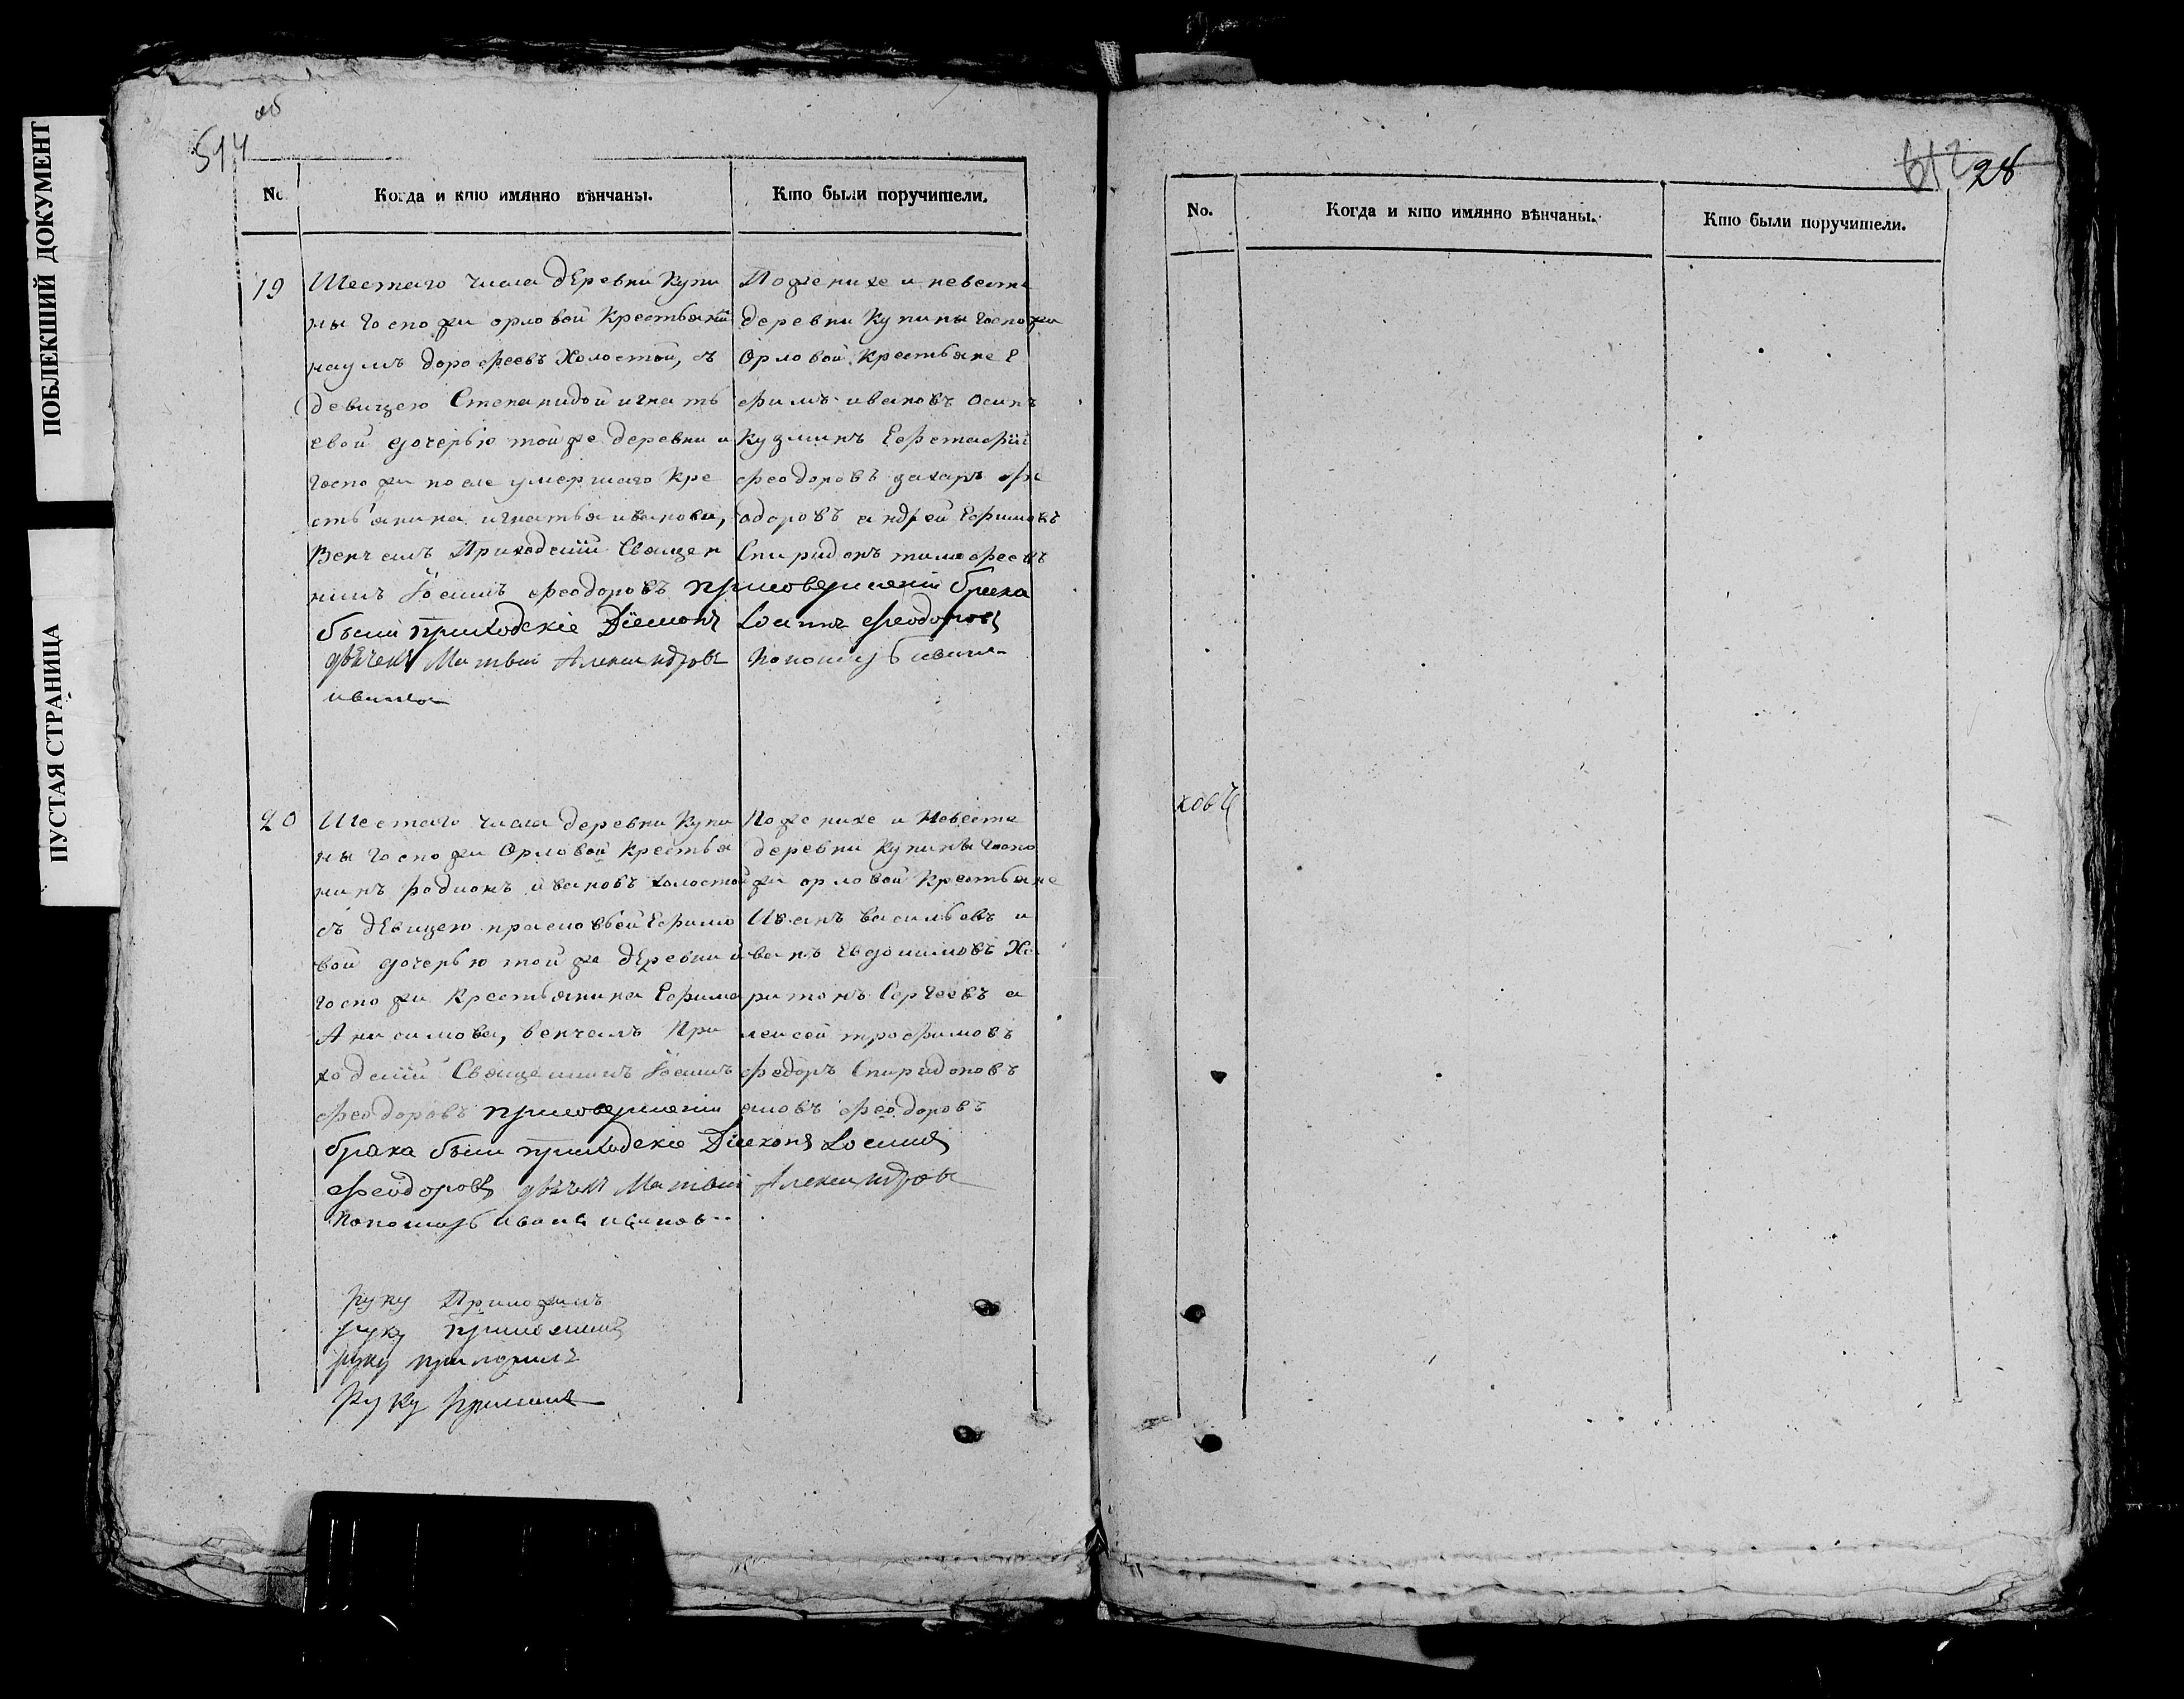 ПОБЛЕКШИЙ ДОКУМЕНТ
ПУСТАЯ СТРАНИЦА
514 об
No
Когда и кто имянно вѣнчаны.
Кто были поручители.
19
Шестаго числа деревни Купи
ны Госпожи орловой Крестьянинъ
наумъ дорофеевъ Холостой, съ
девицею Степанидой игнать
евой дочерью той же деревни и
Госпожи после умершаго Кре
стьянина игнатья иванова,
Венчалъ Приходскій Священ
никъ Іоаннъ феодоровъ присовершеніи брака
были приходскіе Діаконъ Іоаннъ феодоровъ
дьячекъ Матвей Александровъ Пономарь иванъ
ивановъ
По женихе и невесте
деревни Купины Госпожи
Орловой Крестьяне Е
фимъ ивановъ Осипъ
Кузминъ Ефстафій
феодоровъ захаръ фе
одоровъ андрей Ефимовъ
Спиридонъ тимофеевъ
20
Шестаго числа деревни Купи
ны Госпожи Орловой крестья
нинъ родионъ ивановъ холостой
съ девицею прасковьей Ефимо
вой дочерью той же деревни и
госпожи Крестьянина Ефима
Анисимова, венчалъ При
ходскій Священникъ Іоаннъ
феодоровъ присовершеніи
брака были приходскіе Діаконъ Іоаннъ
феодоровъ дьячекъ Матвей Александровъ
Пономарь иванъ ивановъ
По женихе и Невесте
деревни Купины Госпо
жи орловой Крестьяне
Иванъ васильевъ и
ванъ Евдокимовъ Ха
ритонъ Сергеевъ а
лексей трофимовъ
федоръ Спиридоновъ
яковъ феодоровъ
руку Приложилъ
руку приложилъ
руку приложилъ
Руку приложилъ
612 28
No.
Когда и кто имянно вѣнчаны.
Кто были поручители.
ковъ